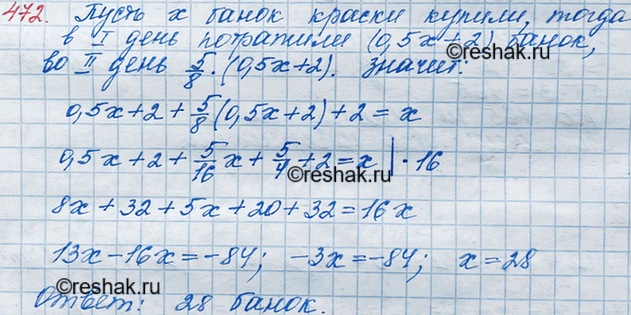 472. Пусть x банок краски купили, тогда
в I день потратили (0,5x+2) банок,
во II день 5/8·(0,5x+2). Значит:
©reshak.ru
0,5x+2+5/8(0,5x+2)+2=x
0,5x+2+5/16x+5/4+2=x |·16
©reshak.ru
8x+32+5x+20+32=16x
13x-16x=-84; -3x=-84; x=28
©reshak.ru
Ответ: 28 банок.